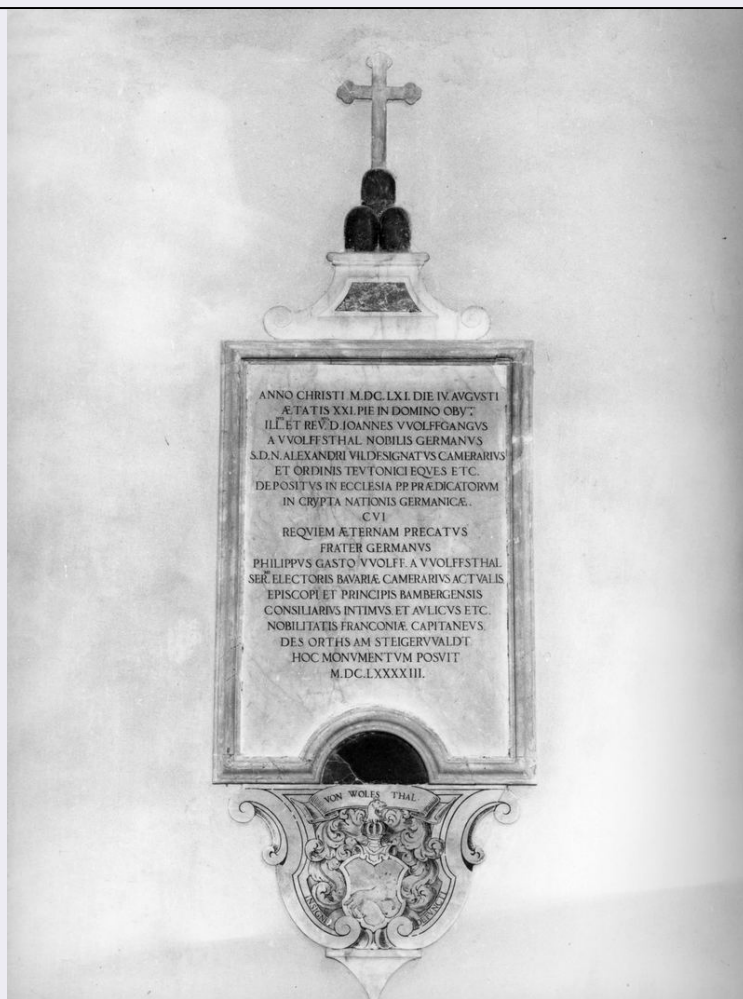 ANNO CHRISTI M.DC.LXI. DIE IV. AVGVSTI
ÆTATIS XXI. PIE IN DOMINO OBYT.
ILL. ET REV. D. IOANNES VVOLFFGANGVS
A VVOLFFSTHAL NOBILIS GERMANVS
S.D.N. ALEXANDRI VII. DESIGNATVS CAMERARIVS
ET ORDINIS TEVTONICI EQVES ETC.
DEPOSITVS IN ECCLESIA PP. PRÆDICATORVM
IN CRYPTA NATIONIS GERMANICÆ.
CVI
REQVIEM ÆTERNAM PRECATVS
FRATER GERMANVS
PHILIPPVS GASTO VVOLFF. A VVOLFFSTHAL
SER. ELECTORIS BAVARIÆ CAMERARIVS ACTVALIS
EPISCOPI ET PRINCIPIS BAMBERGENSIS
CONSILIARIVS INTIMVS. ET AVLICVS ETC.
NOBILITATIS FRANCONIÆ CAPITANEVS.
DES ORTHS AM STEIGERVVALDT
HOC MONVMENTVM POSVIT
M.DC.LXXXXIII.
VON WOLFS THAL
INSIGNIA DEFVNCTI